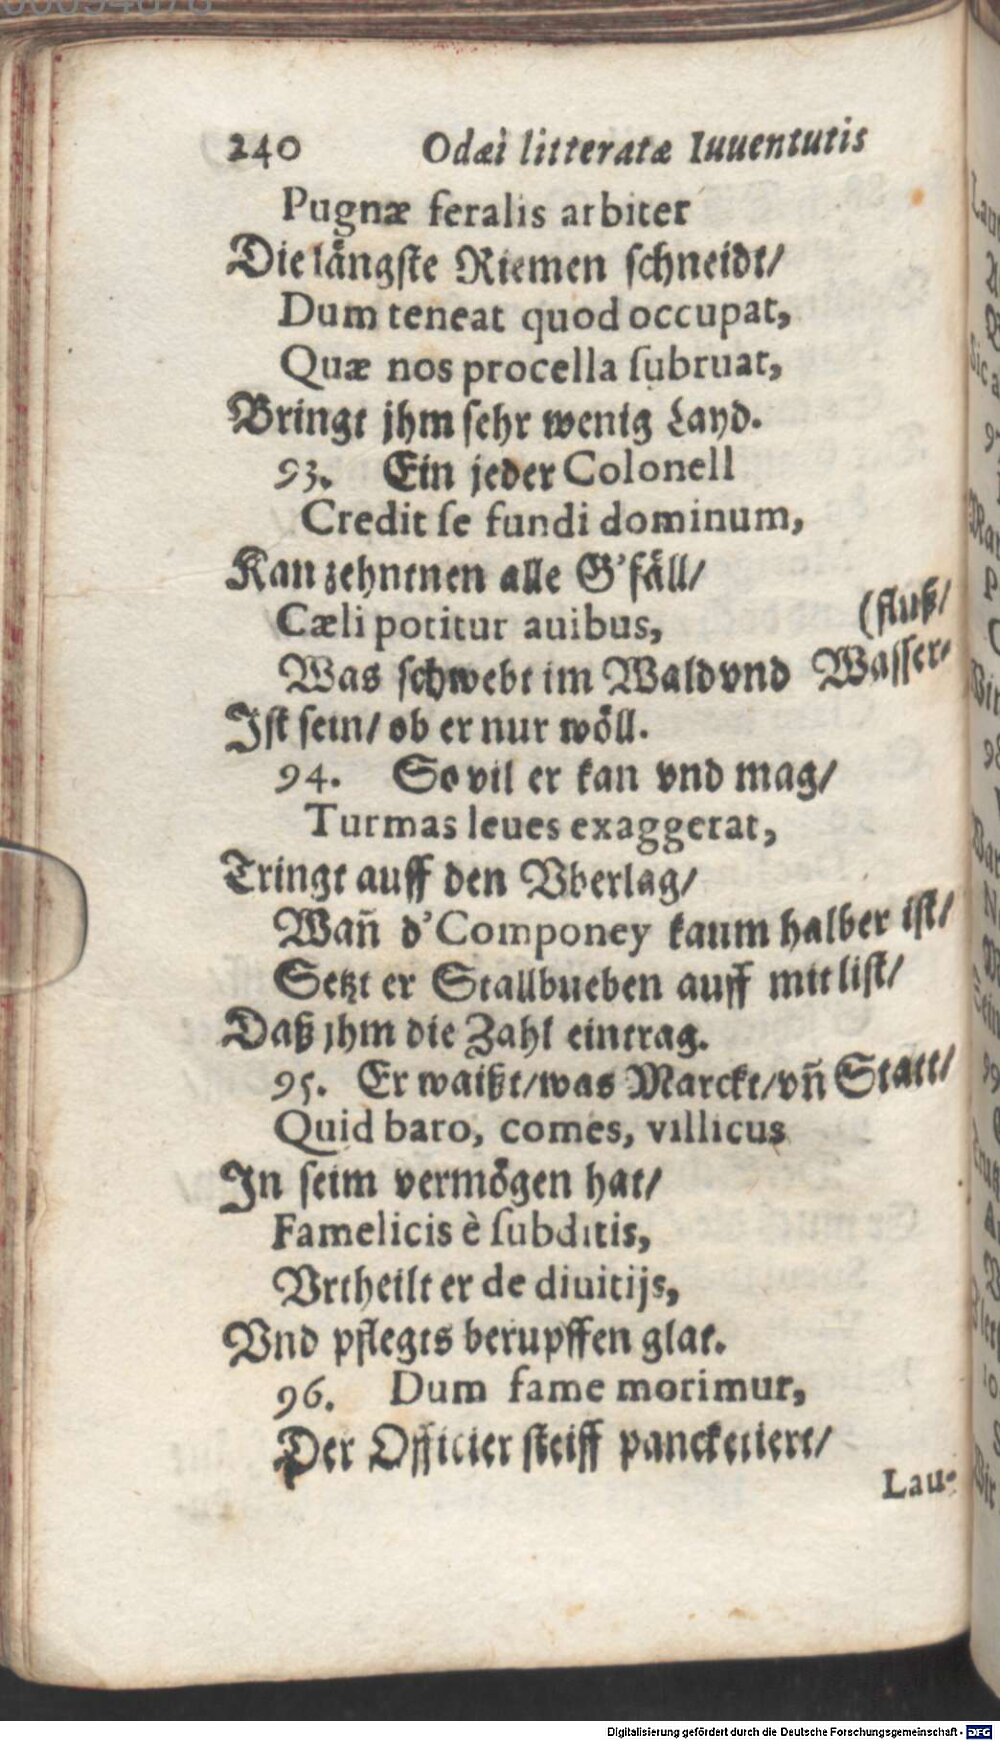 240 Odæi litteratæ Iuuentutis
Pugnæ feralis arbiter
Die längste Riemen schneidt/
Dum teneat quod occupat,
Quæ nos procella subruat,
Bringt jhm sehr wenig Layd.
93. Ein jeder Colonell
Credit se fundi dominum,
Kan zehntnen alle G'fäll/
Cæli potitur auibus, (fluß/
Was schwebt im Wald vnd Wasser-
Ist sein/ ob er nur wöll.
94. So vil er kan vnd mag/
Turmas leues exaggerat,
Tringt auff den Vberlag/
Wañ d'Componey kaum halber ist/
Setzt er Stallbueben auff mit list/
Daß jhm die Zahl eintrag.
95. Er waißt/was Marckt/vñ Statt/
Quid baro, comes, villicus
In seim vermögen hat/
Famelicis è subditis,
Vrtheilt er de diuitijs,
Vnd pflegts berupffen glat.
96. Dum fame morimur,
Der Officier steiff pancketiert/
Lau-
Digitalisierung gefördert durch die Deutsche Forschungsgemeinschaft - DFG